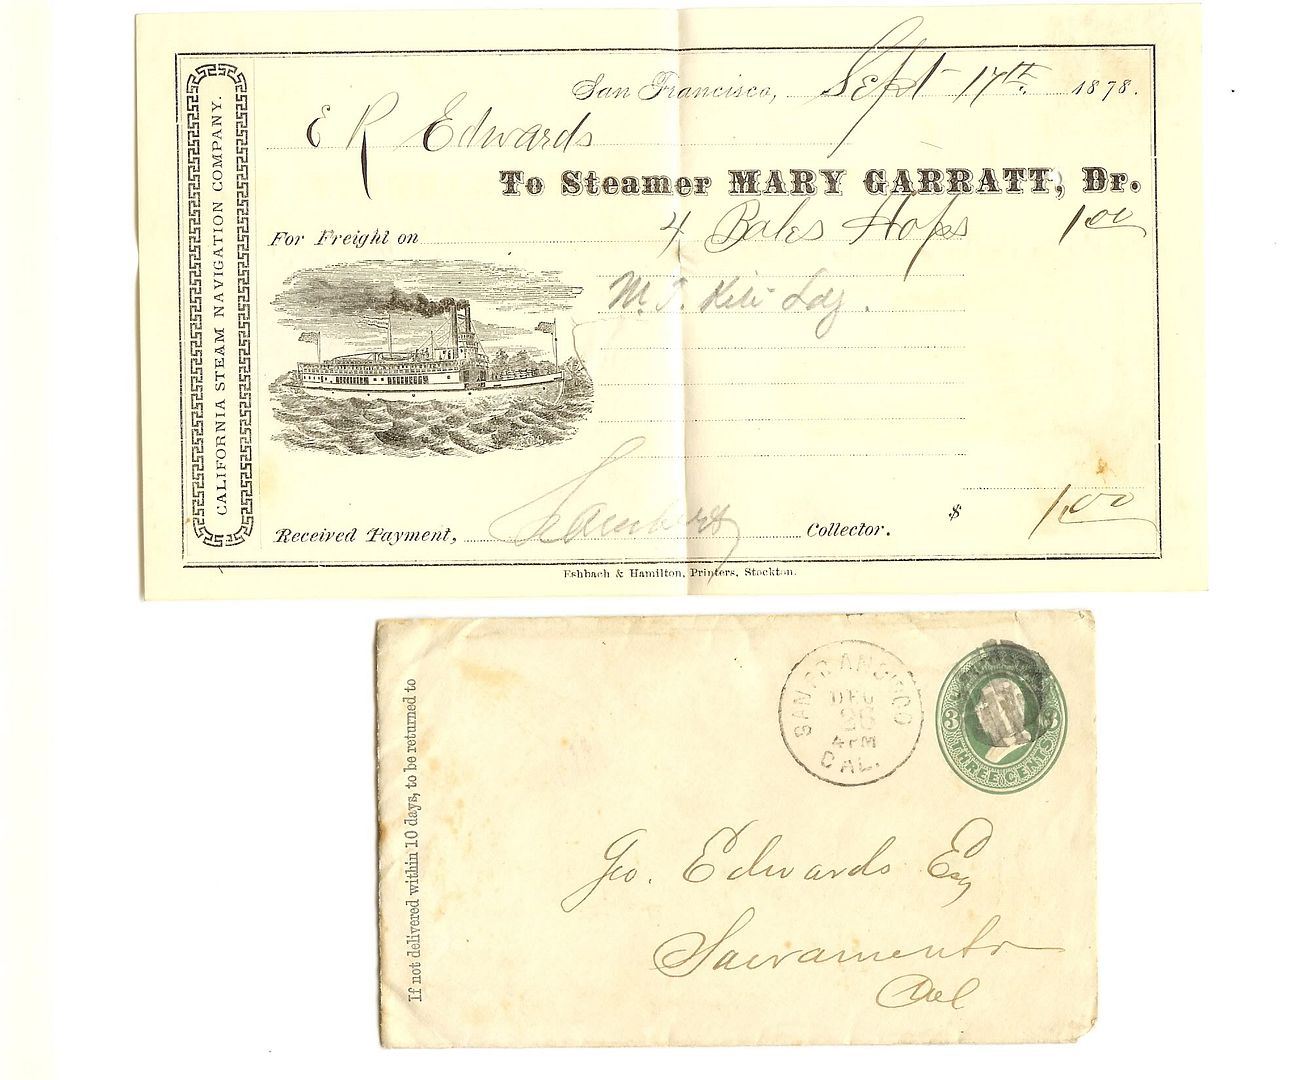 CALIFORNIA STEAM NAVIGATION COMPANY.
San Francisco, Sept 17th. 1878.
E R Edwards
To Steamer MARY GARRATT, Dr.
For Freight on 4 Bales Hops 1.00
M. T. Ldg.
$ 1.00
Received Payment, Collector.
Eshbach & Hamilton, Printers, Stockton.
If not delivered within 10 days, to be returned to
SAN FRANCISCO
DEC
26
4 PM
CAL.
3 3
THREE CENTS
Geo. Edwards Esq
Sacramento
Cal